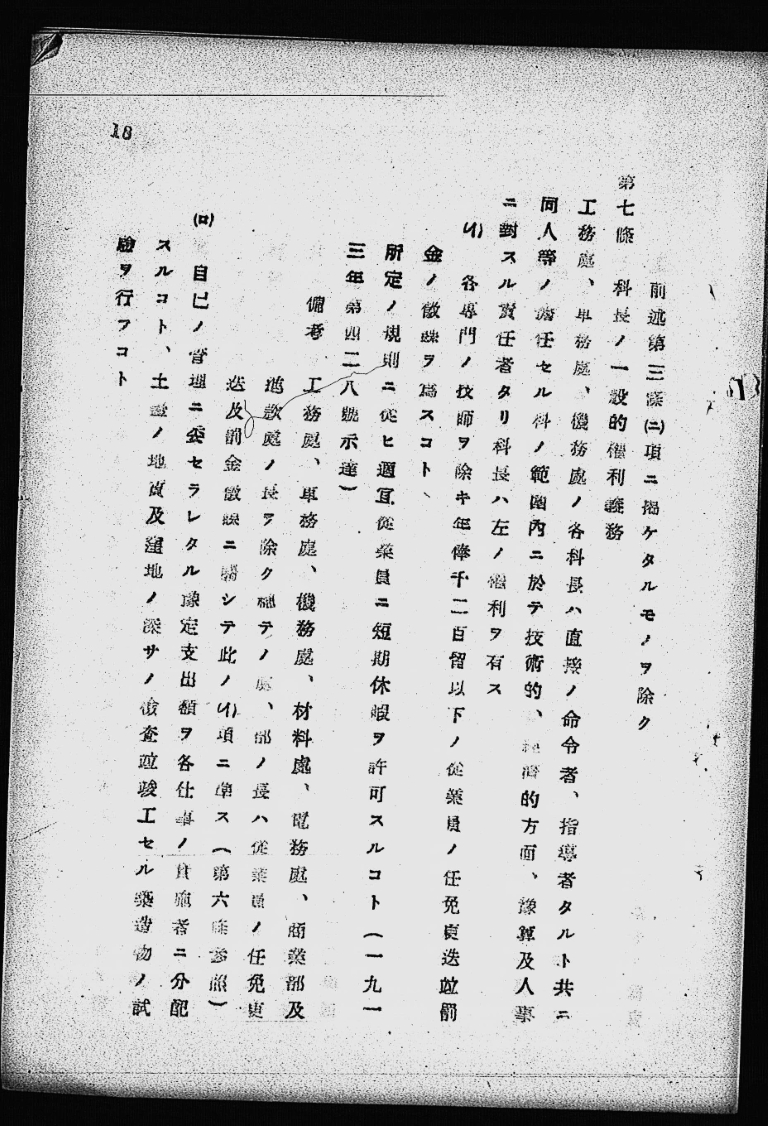 前述第三條(ニ)項ニ揭ケタルモノヲ除ク
第七條 科長ノ一般的權利義務
工務處、車務處、機務處ノ各科長ハ直接ノ命令者、指導者タルト共ニ
同人等ノ擔任セル科ノ範圍內ニ於テ技術的、經濟的方面、豫算及人事
ニ對スル責任者タリ科長ハ左ノ權利ヲ有ス
(イ) 各專門ノ技師ヲ除キ年俸千二百留以下ノ從業員ノ任免更迭竝罰
金ノ徵課ヲ爲スコト、
所定ノ規則ニ從ヒ適宜從業員ニ短期休暇ヲ許可スルコト(一九一
三年第四二八號示達)
備考 工務處、車務處、機務處、材料處、電務處、商業部及
進款處ノ長ヲ除ク總テノ處、部ノ長ハ從業員ノ任免更
迭及罰金徵課ニ關シテ此ノ(イ)項ニ準ス(第六條參照)
(ロ) 自已ノ管理ニ委セラレタル豫定支出額ヲ各仕事ノ負擔者ニ分配
スルコト、土地ノ地質及窪地ノ深サノ檢査竝竣工セル築造物ノ試
驗ヲ行フコト
18